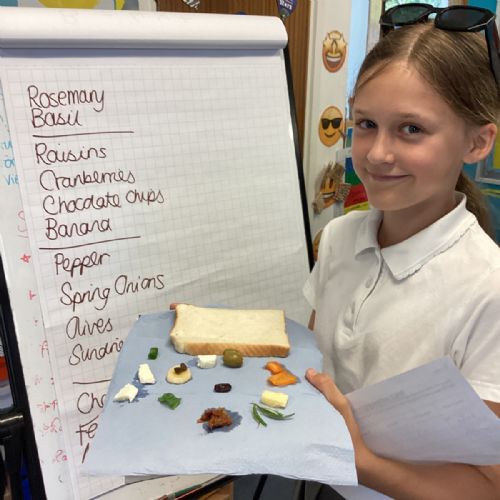 Rosemary
Basil
Raisins
Cranberries
Chocolate chips
Banana
Pepper
Spring Onions
Olives
Sundrie
Cho
Fe